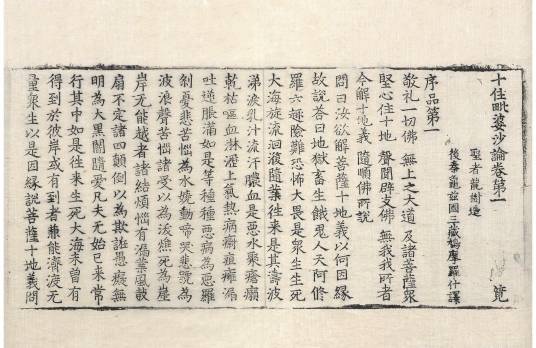 十住毗婆沙論卷第一 覽
聖者龍樹造
後秦龜茲國三藏鳩摩羅什譯
序品第一
敬礼一切佛 無上之大道 及諸菩薩衆
堅心住十地 聲聞辟支佛 無我我所者
今解十地義 隨順佛所說
問曰汝欲解菩薩十地義以何因緣
故說荅曰地獄畜生餓鬼人天阿修
羅六趣險難恐怖大畏是衆生生死
大海旋流洄澓隨業往来是其濤波
涕淚乳汁流汗膿血是惡水聚瘡癩
乾枯嘔血淋瀝上氣熱病瘭疽癰漏
吐逆脹滿如是等種種惡病為惡羅
刹憂悲苦惱為水嬈動啼哭悲號為
波浪聲苦惱諸受以為沃燋死為崖
岸无能越者諸結煩惱有漏業風鼓
扇不定諸四顛倒以為欺誑愚癡無
明為大黑闇隨愛凡夫无始已来常
行其中如是往来生死大海未曾有
得到於彼岸或有到者兼能濟渡无
量衆生以是因緣說菩薩十地義問